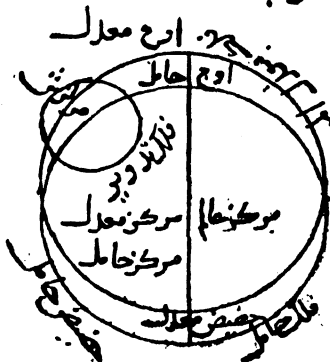 اوج معدل
اوج حامل
فلك تدوير
مركز معدل
مركز عالم
مركز حامل
حضيض معدل
حضيض حامل
فلك حامل